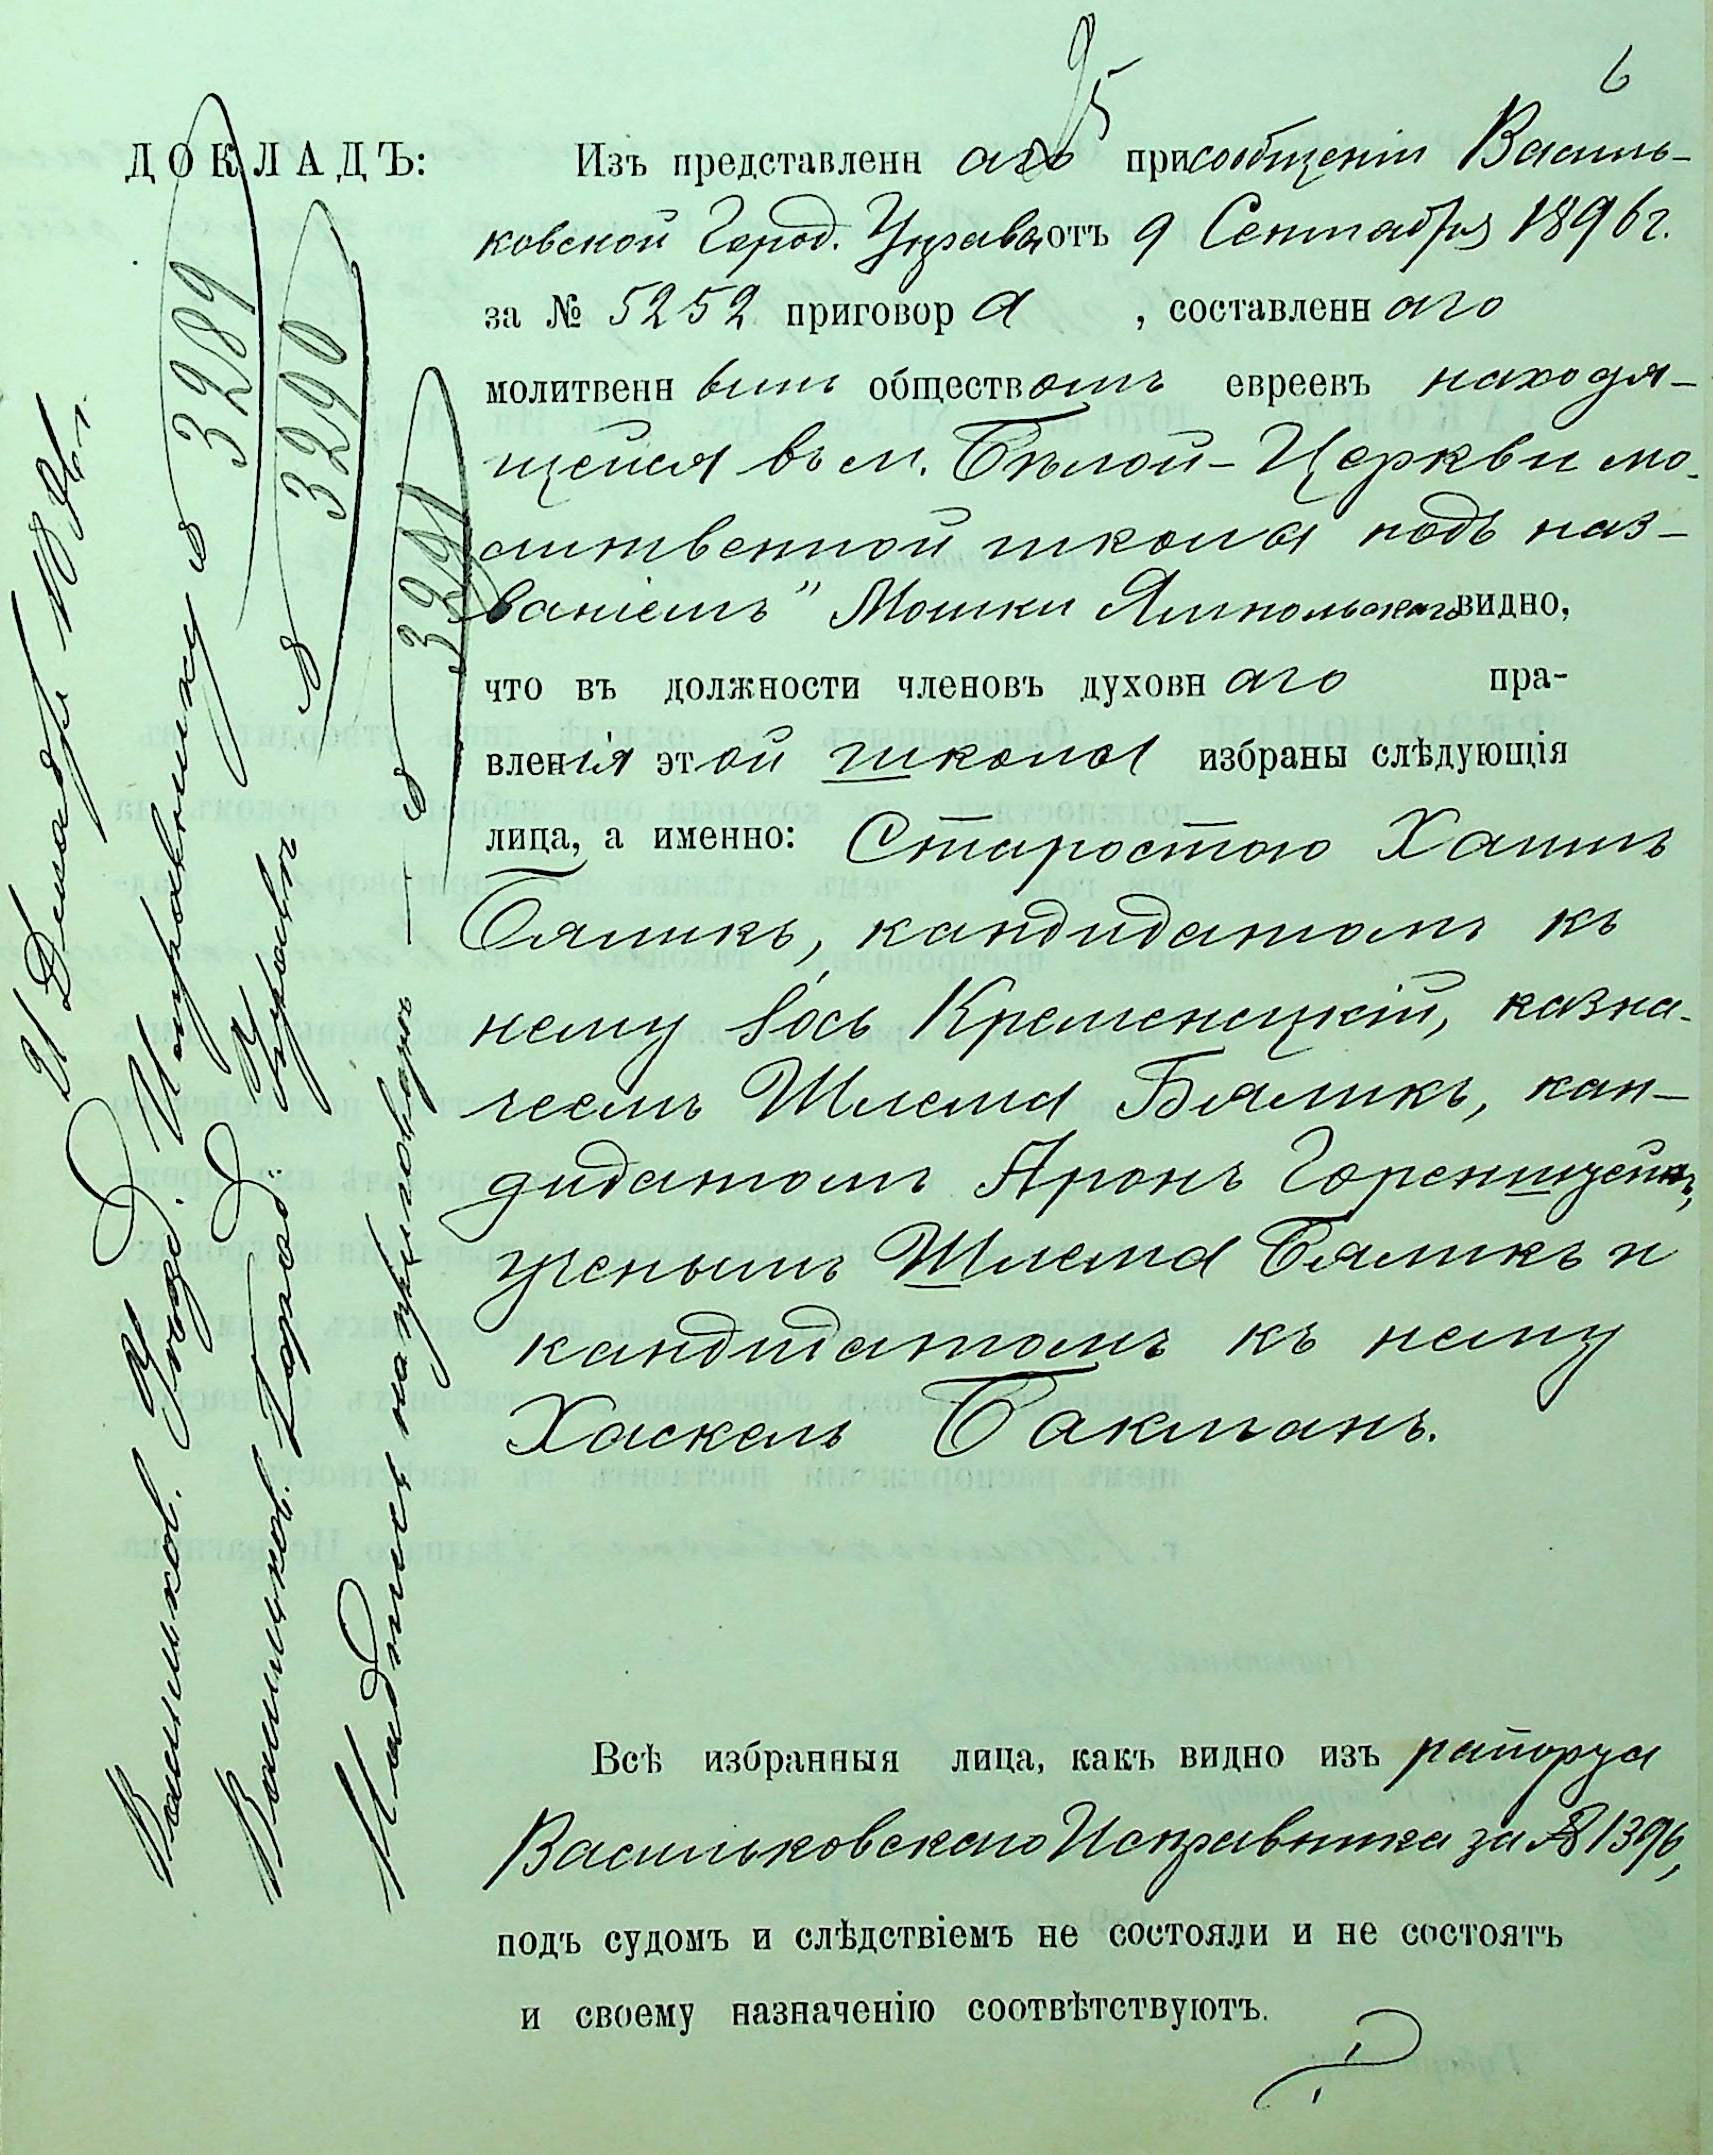 25
6
ДОКЛАДЪ: Изъ представленнаго при сообщеніи Василь-
ковской Город. Управы отъ 9 Сентября 1896 г.
за № 5252 приговора, составленнаго
молитвеннымъ обществомъ евреевъ находя-
щейся въ м. Бѣлой-Церкви мо-
литвенной школы подъ наз-
ваніемъ " Мошки Ямпольскаго видно,
что въ должности членовъ духовнаго пра-
вленія этой школы избраны слѣдующія
лица, а именно: Старостою Хаимъ
Бяликъ, кандидатомъ къ
нему Іось Кременецкій, казна-
чеемъ Шлема Бяликъ, кан-
дидатомъ Аронъ Горенштейнъ,
ученымъ Шлема Бяликъ и
кандидатомъ къ нему
Хаскель Бакманъ.
Всѣ избранныя лица, какъ видно изъ рапорта
Васильковскаго Исправника за № 1396,
подъ судомъ и слѣдствіемъ не состояли и не состоятъ
и своему назначенію соотвѣтствуютъ.
Декабря 1896 г.
Васильков. Уѣзд. Исправнику № 3289
Васильков. Город. Управѣ № 3290
Надпись на приговорѣ — № 3291